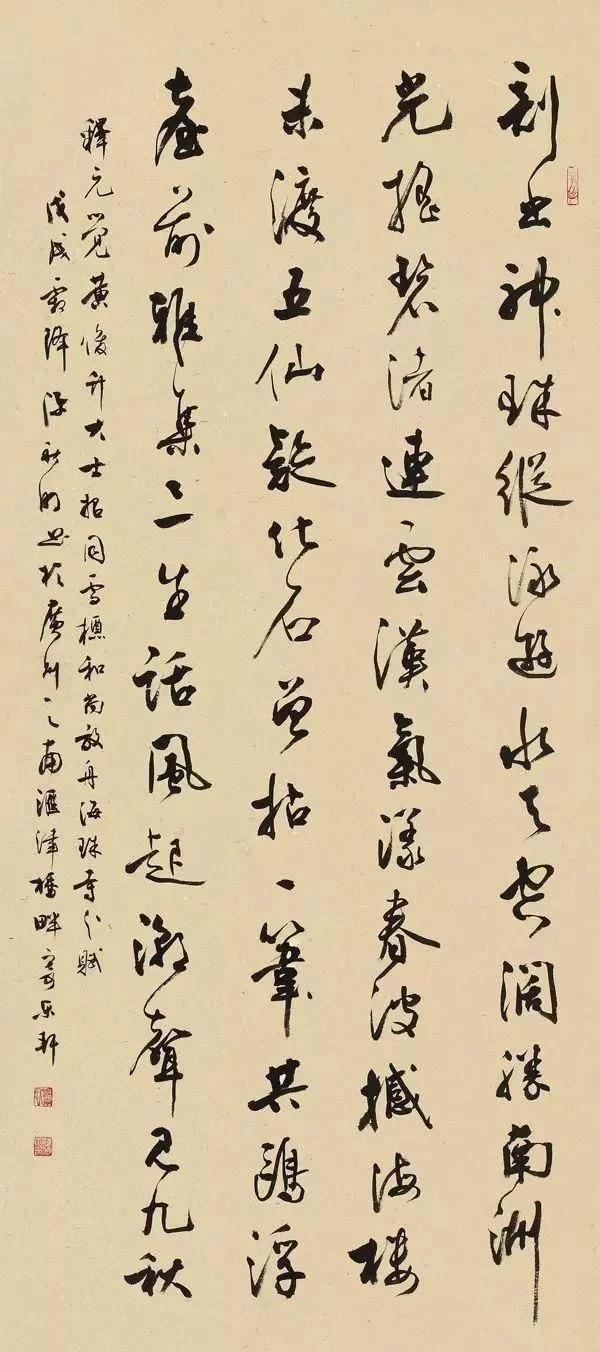 出神珠縱泳遊水天空闊勝南洲
光搖碧渚連雲漢氣漾春波撼海樓
未渡五仙疑化石曾拈一葦共鷗浮
臺前雅集三生話風起潮聲見九秋
釋元覺黃俊升大士招同雪和尚放舟海珠寺分賦
戊戌霜降陳秋明書於廣州之南滙津橋畔寄樂軒